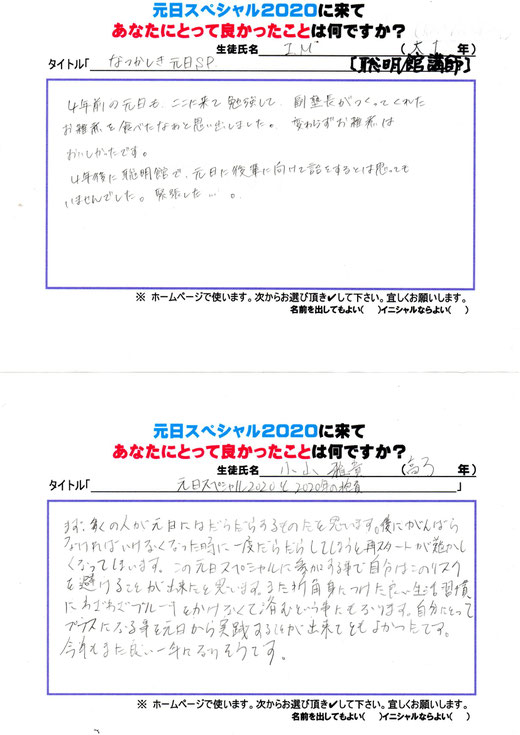 元日スペシャル2020に来て
あなたにとって良かったことは何ですか?
生徒氏名 I.M （大1 年）
タイトル「なつかしき元日SP 【聡明館講師】
4年前の元日も、ここに来て勉強して、副塾長がつくってくれた
お雑煮を食べたなあと思い出しました。変わらずお雑煮は
おいしかったです。
4年後に聡明館で、元日に後輩に向けて話をするとは思っても
いませんでした。緊張した…。
※ ホームページで使います。次からお選び頂き✔して下さい。宜しくお願いします。
名前を出してもよい（ ）イニシャルならよい（ ）
元日スペシャル2020に来て
あなたにとって良かったことは何ですか?
生徒氏名 小山 （高3 年）
タイトル「元日スペシャル2020と2020年の抱負」
まず、多くの人が元日にはだらだらするものだと思います。後にがんばら
なければいけなくなった時に一度だらだらしてしまうと再スタートが難かし
くなってしまいます。この元日スペシャルに参加する事で自分はこのリスク
を避けることが出来たと思います。また折角身につけた良い生活習慣
にわざわざブレーキをかけなくて済むという事にもなります。自分にとって
プラスになる事を元日から実践する事が出来てとてもよかったです。
今年もまた良い一年になりそうです。
※ ホームページで使います。次からお選び頂き✔して下さい。宜しくお願いします。
名前を出してもよい（ ）イニシャルならよい（ ）